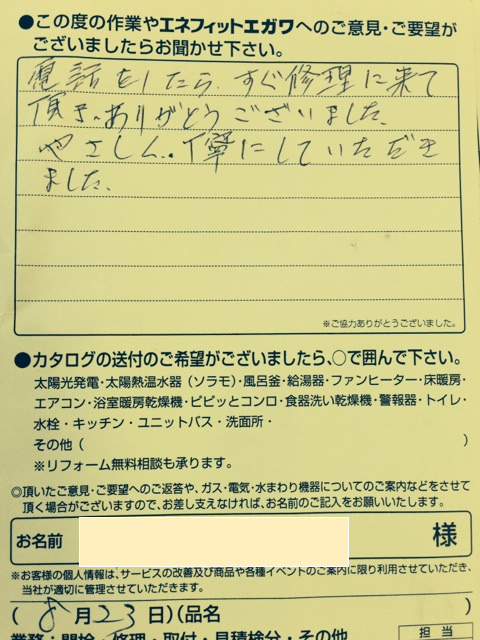 ●この度の作業やエネフィットエガワへのご意見・ご要望が
ございましたらお聞かせ下さい。
電話をしたら、すぐ修理に来て
頂き、ありがとうございました。
やさしく、丁寧にしていただき
ました。
※ご協力ありがとうございました。
●カタログの送付のご希望がございましたら、○で囲んで下さい。
太陽光発電・太陽熱温水器（ソラモ）・風呂釜・給湯器・ファンヒーター・床暖房・
エアコン・浴室暖房乾燥機・ピピッとコンロ・食器洗い乾燥機・警報器・トイレ・
水栓・キッチン・ユニットバス・洗面所・
その他（　　　）
※リフォーム無料相談も承ります。
◎頂いたご意見・ご要望へのご返答や、ガス・電気・水まわり機器についてのご案内などをさせて
頂く場合がございますので、お差し支えなければ、お名前のご記入をお願いいたします。
お名前　　　様
※お客様の個人情報は、サービスの改善及び商品や各種イベントのご案内に限り利用させていただき、
当社が適切に管理させていただきます。
（8月23日）（品名　　　）
業務：開栓・修理・取付・見積検分・その他
担当